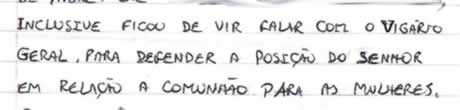 INCLUSIVE FICOU DE VIR FALAR COM O VIGÁRIO
GERAL, PARA DEFENDER A POSIÇÃO DO SENHOR
EM RELAÇÃO A COMUNHÃO PARA AS MULHERES.